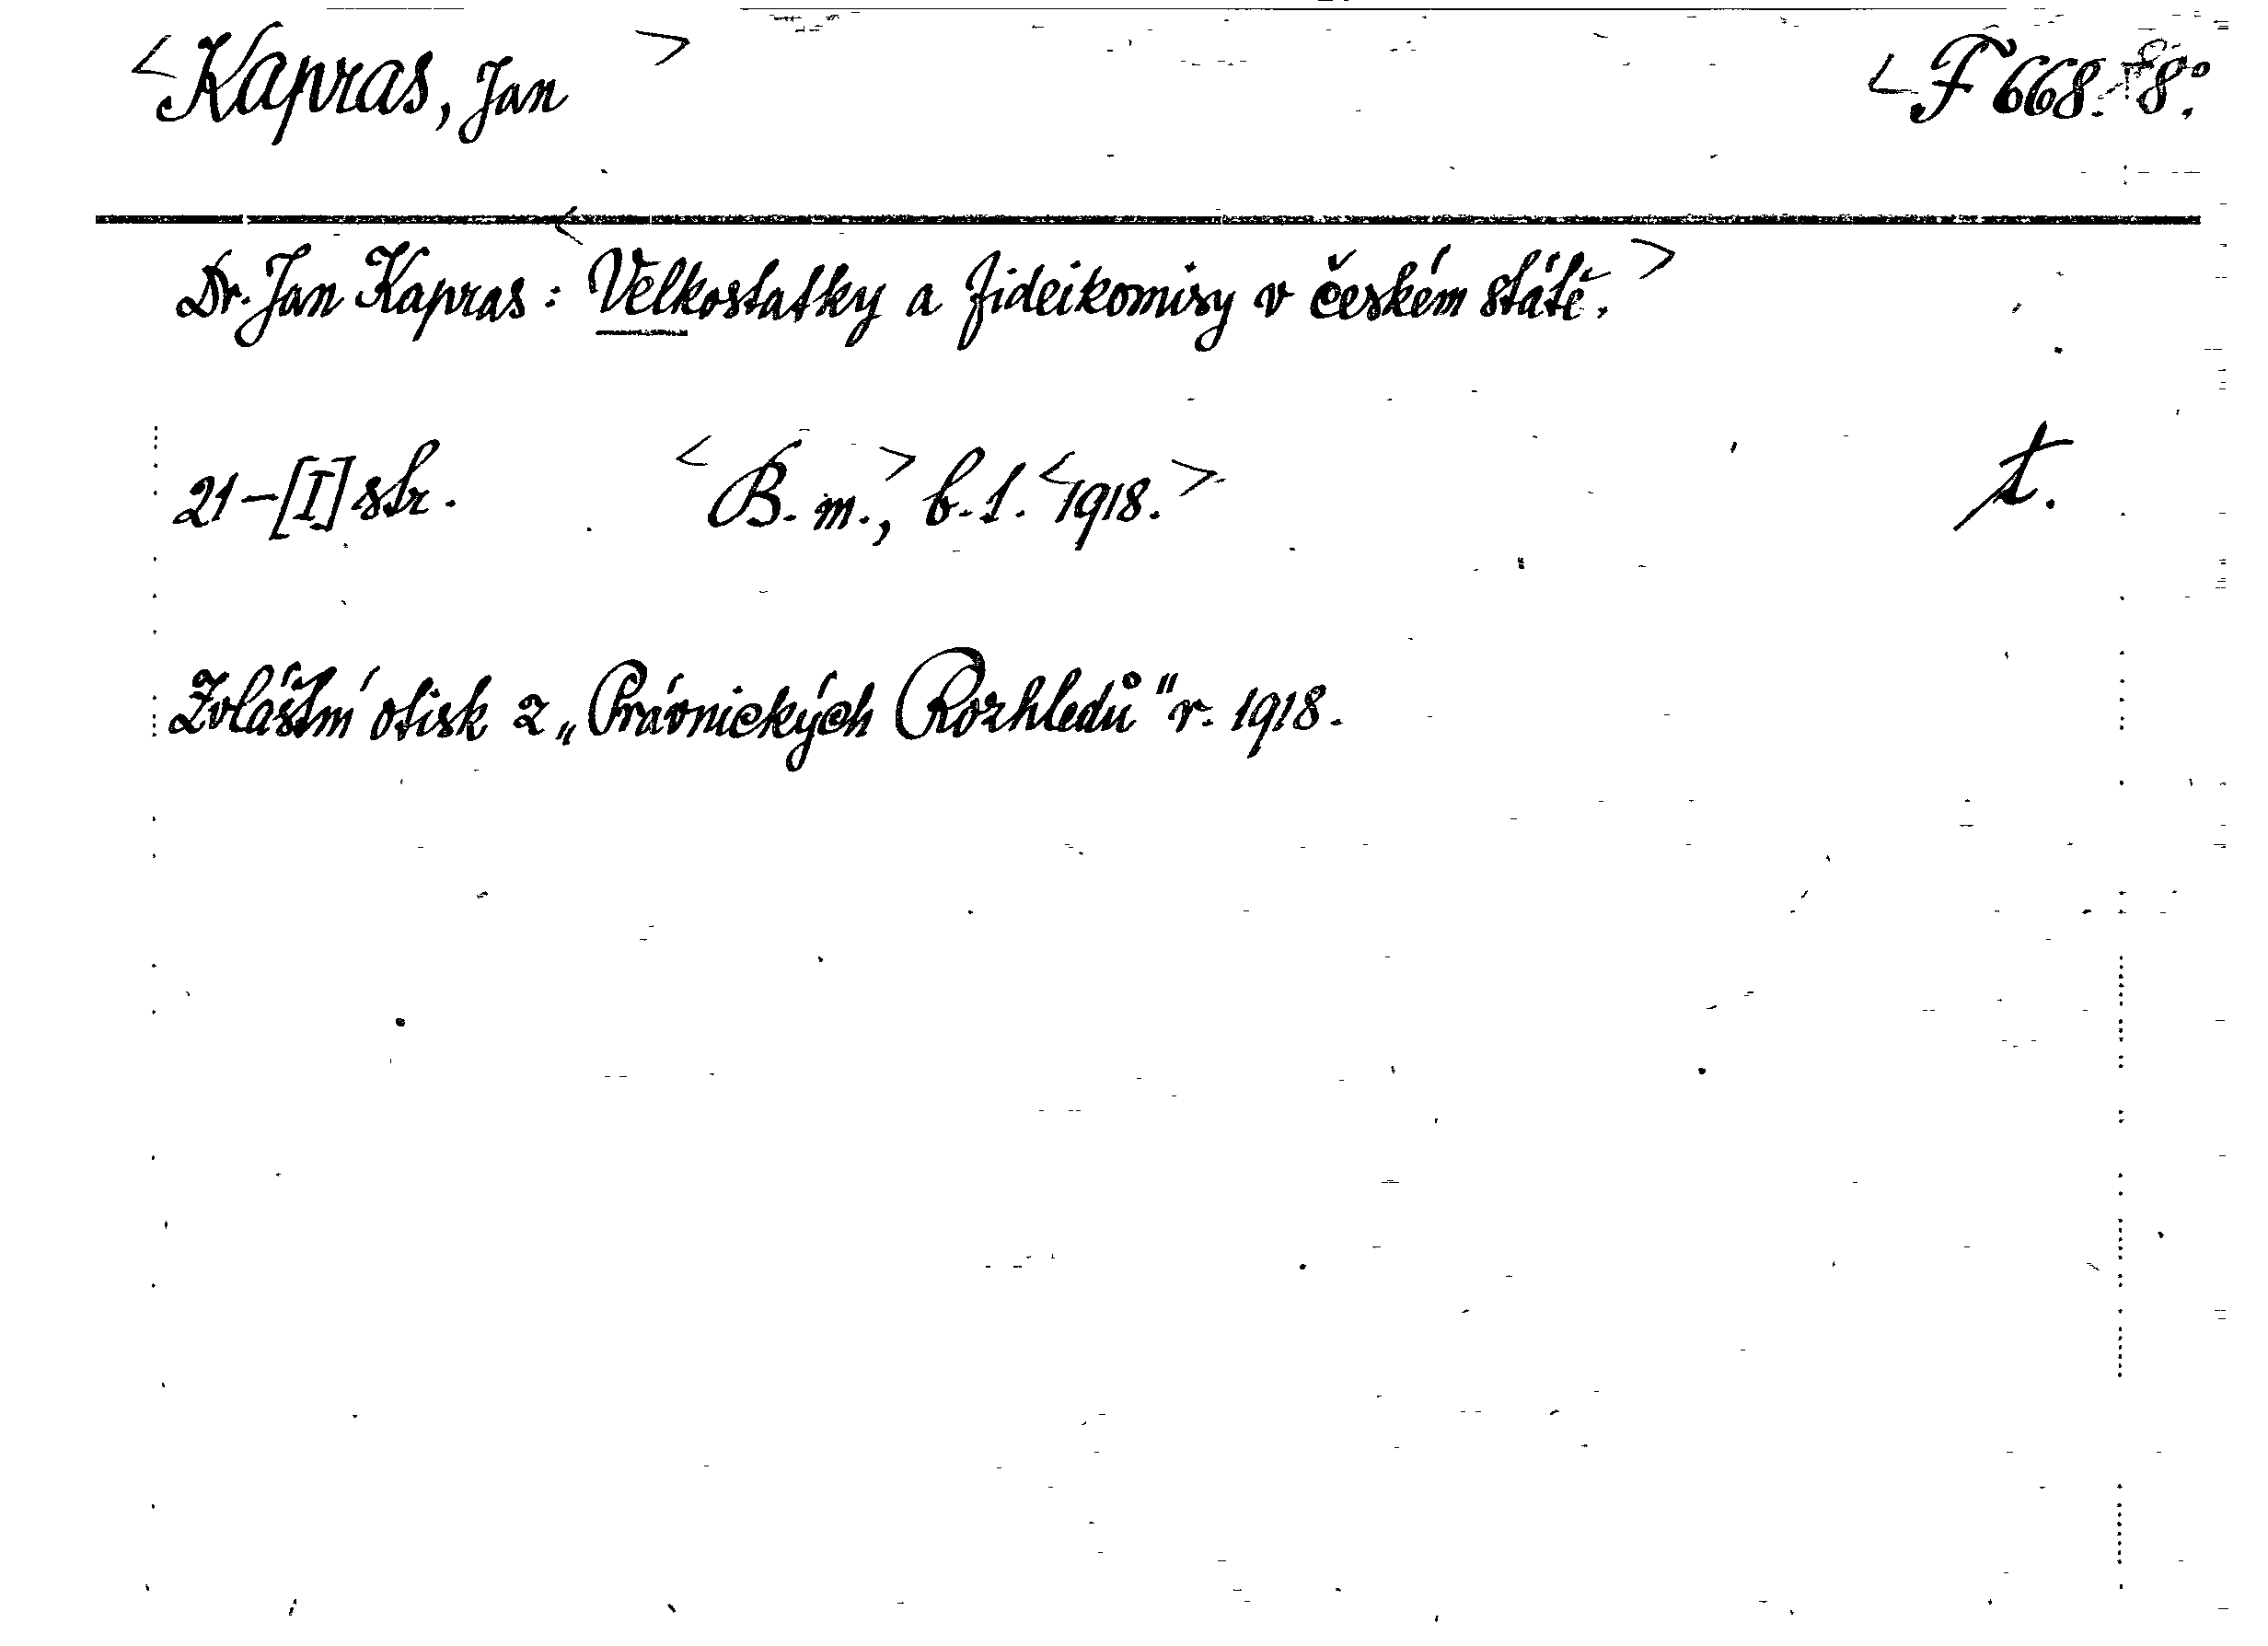 <Kapras, Jan> <F 668. 8°.
Dr. Jan Kapras: <Velkostatky a fideikomisy v českém státě.>
21-[I] str. <B. m.>, b. l. <1918.> t.
Zvláštní otisk z „Právnických Rozhledů" r. 1918.